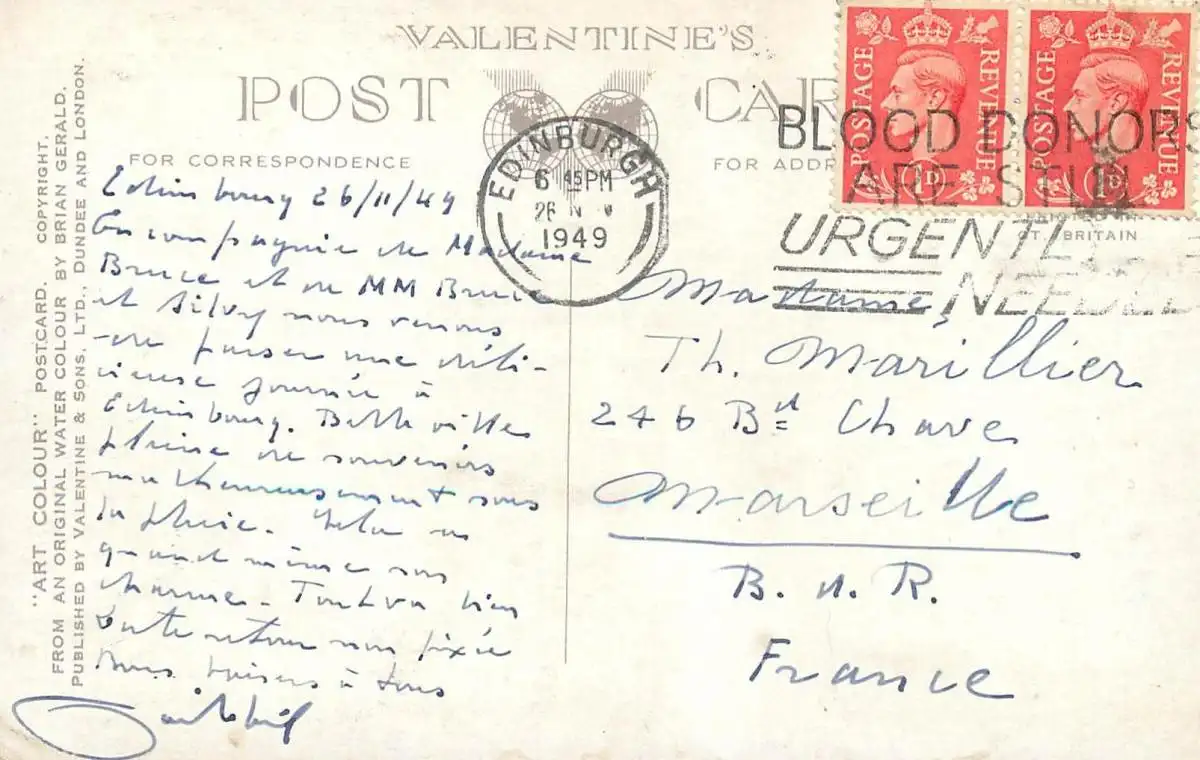 VALENTINE'S
POST CAR
FOR CORRESPONDENCE
FOR ADDR
"ART COLOUR" POSTCARD. COPYRIGHT.
FROM AN ORIGINAL WATER COLOUR BY BRIAN GERALD.
PUBLISHED BY VALENTINE & SONS, LTD., DUNDEE AND LONDON.
EDINBURGH
6 45 PM
26 N V
1949
POSTAGE REVENUE
1D
POSTAGE REVENUE
1D
BLOOD DONORS
ARE STILL
URGENTL
NEEDED
GT. BRITAIN
Edimbourg 26/11/49
En compagnie de Madame
Bruce et de MM Bruce
et Silvy nous venons
de passer une déli-
cieuse journée à
Edimbourg. Belle ville
pleine de souvenirs
malheureusement sous
la pluie. Cela a
quand même son
charme. Tout va bien
Date retour non fixée
Bons baisers à tous
Madame,
Th. Marillier
246 Bd Chave
Marseille
B. d. R.
France